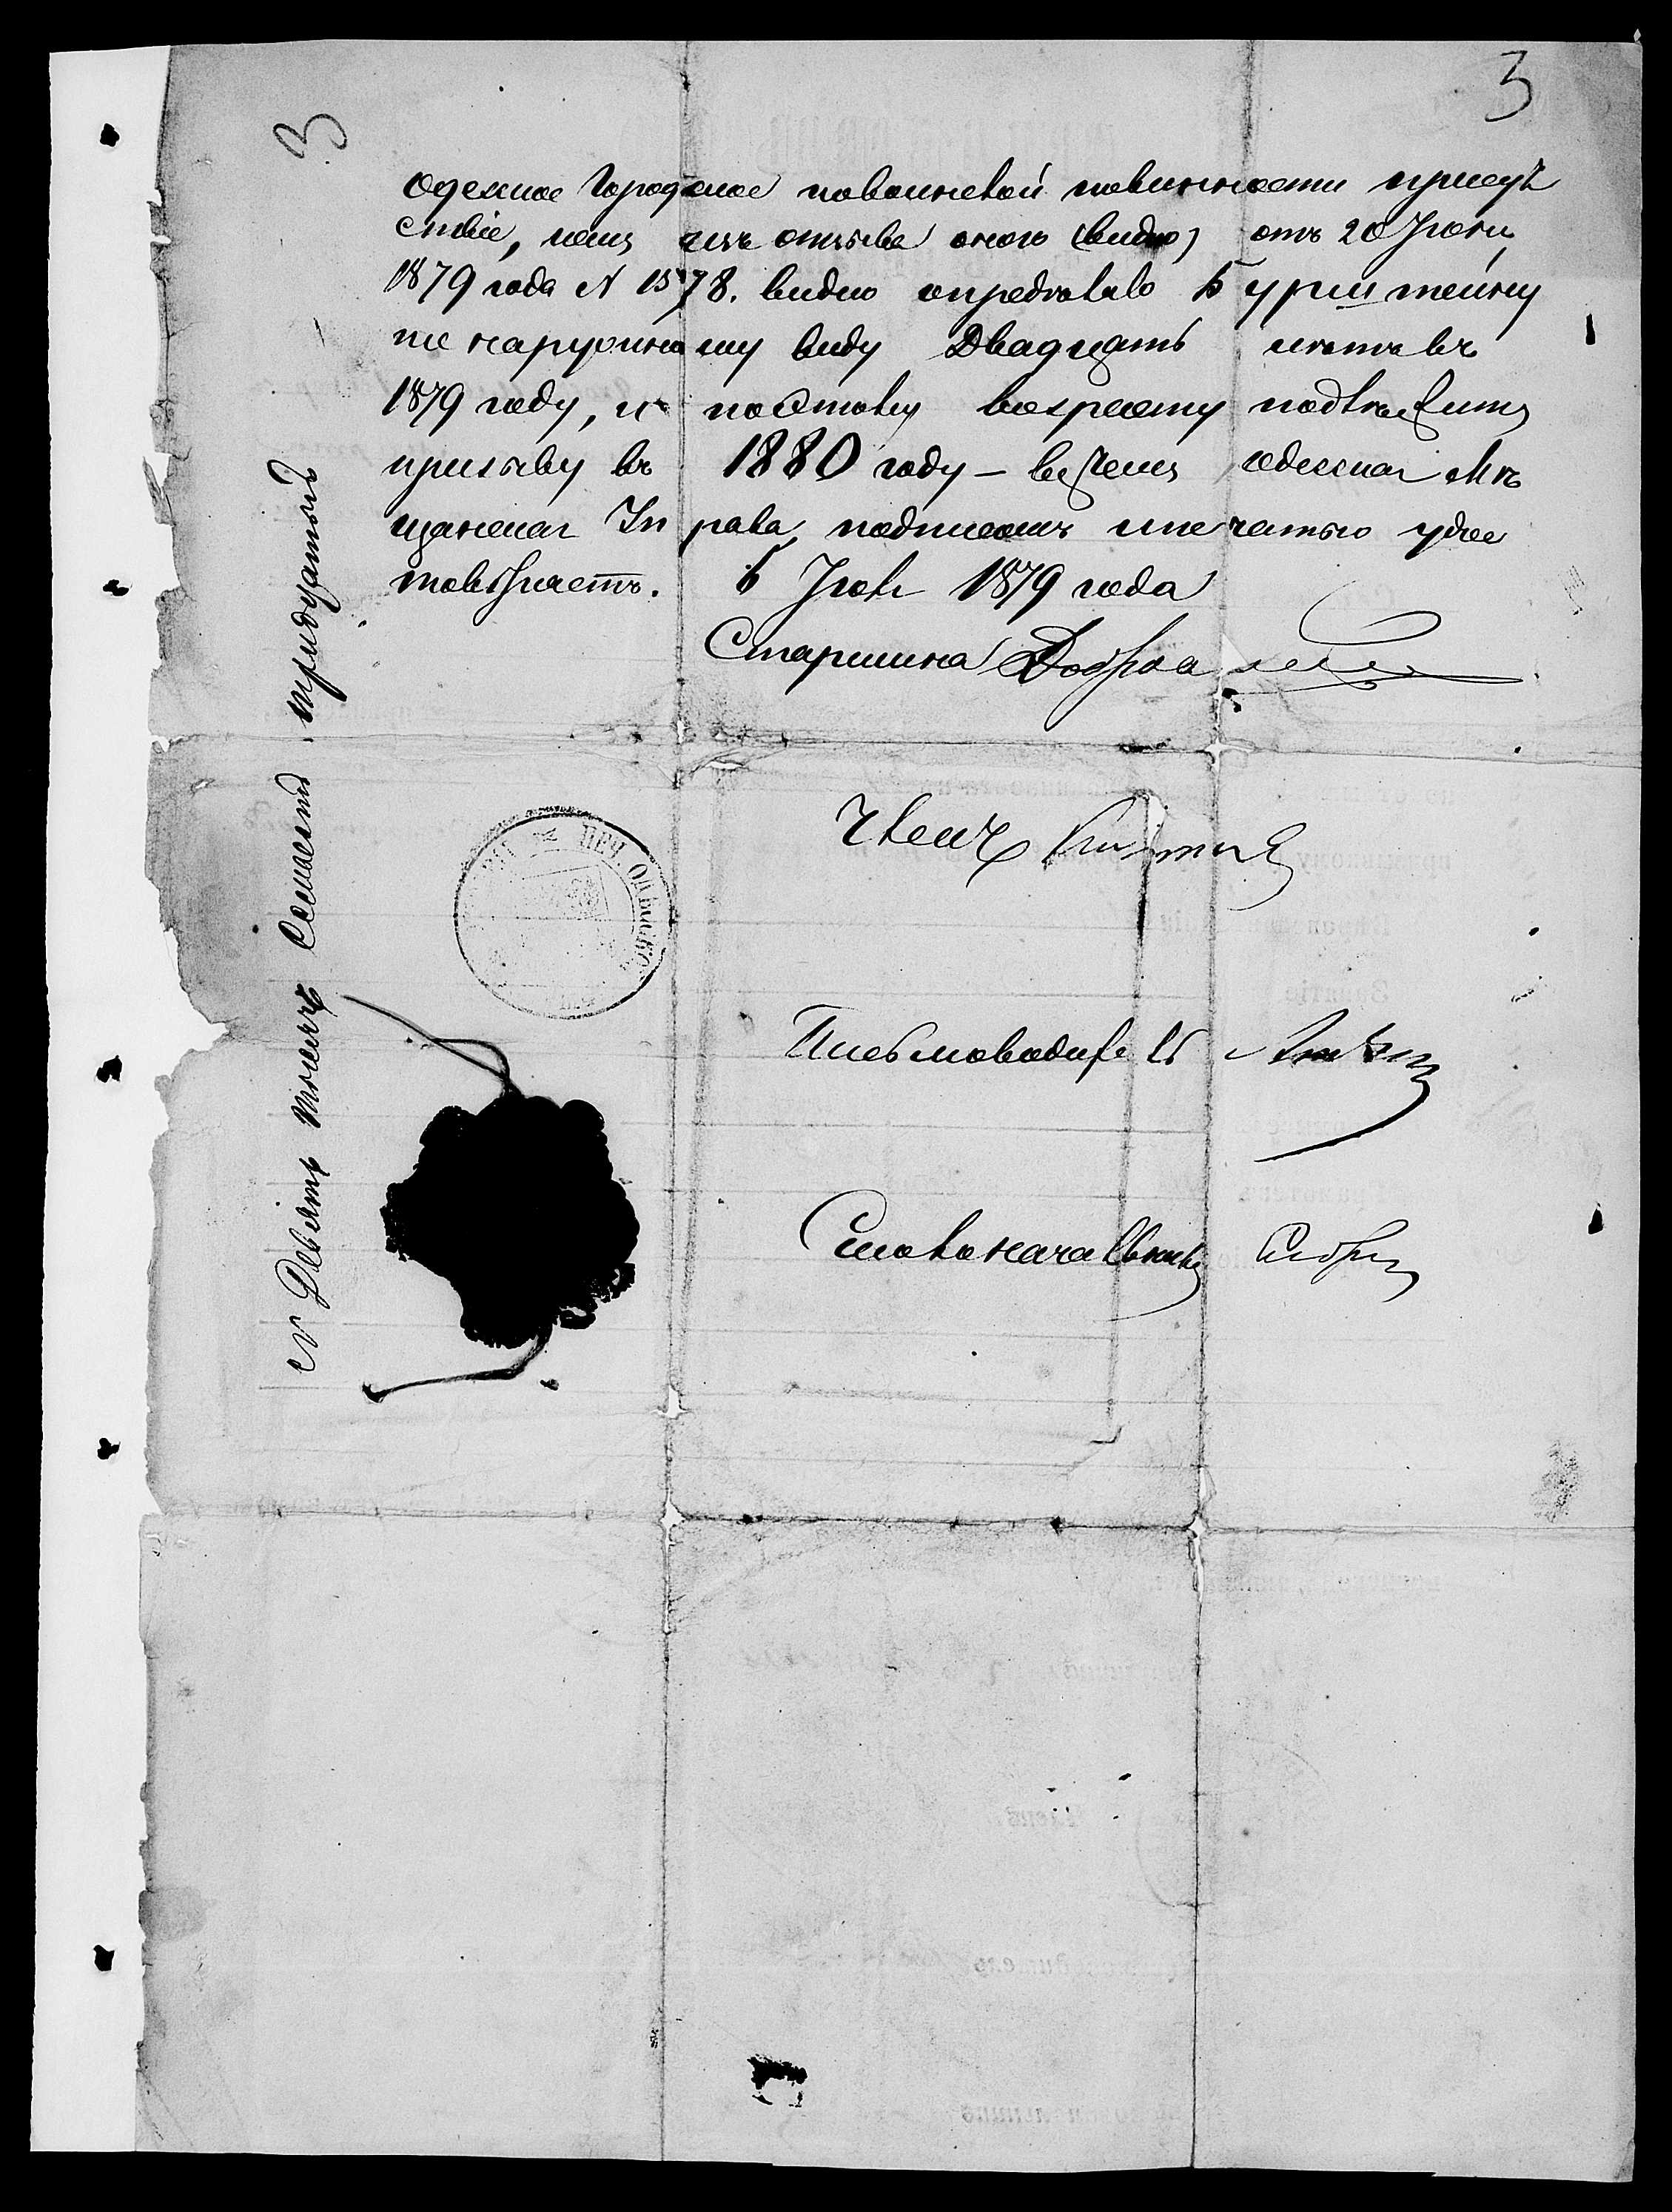 3
3
Одесское Городское по воинской повинности присут
ствіе, какъ изъ отзыва оного (видно) отъ 20 Іюня
1879 года N 1578. видно опредѣлило Бурштейну
по наружному виду Двадцать лѣтъ въ
1879 году, и по этому возрасту подлежитъ
призыву въ 1880 году – въ чемъ Одесская Мѣ
щанская Управа подписомъ и печатью удос
товѣряетъ. Іюля 1879 года
Старшина
Членъ
Письмоводитель
Столоначальникъ
N Девять тысячъ Семьсотъ тридцатый
ПЕЧ. ОДЕССКО